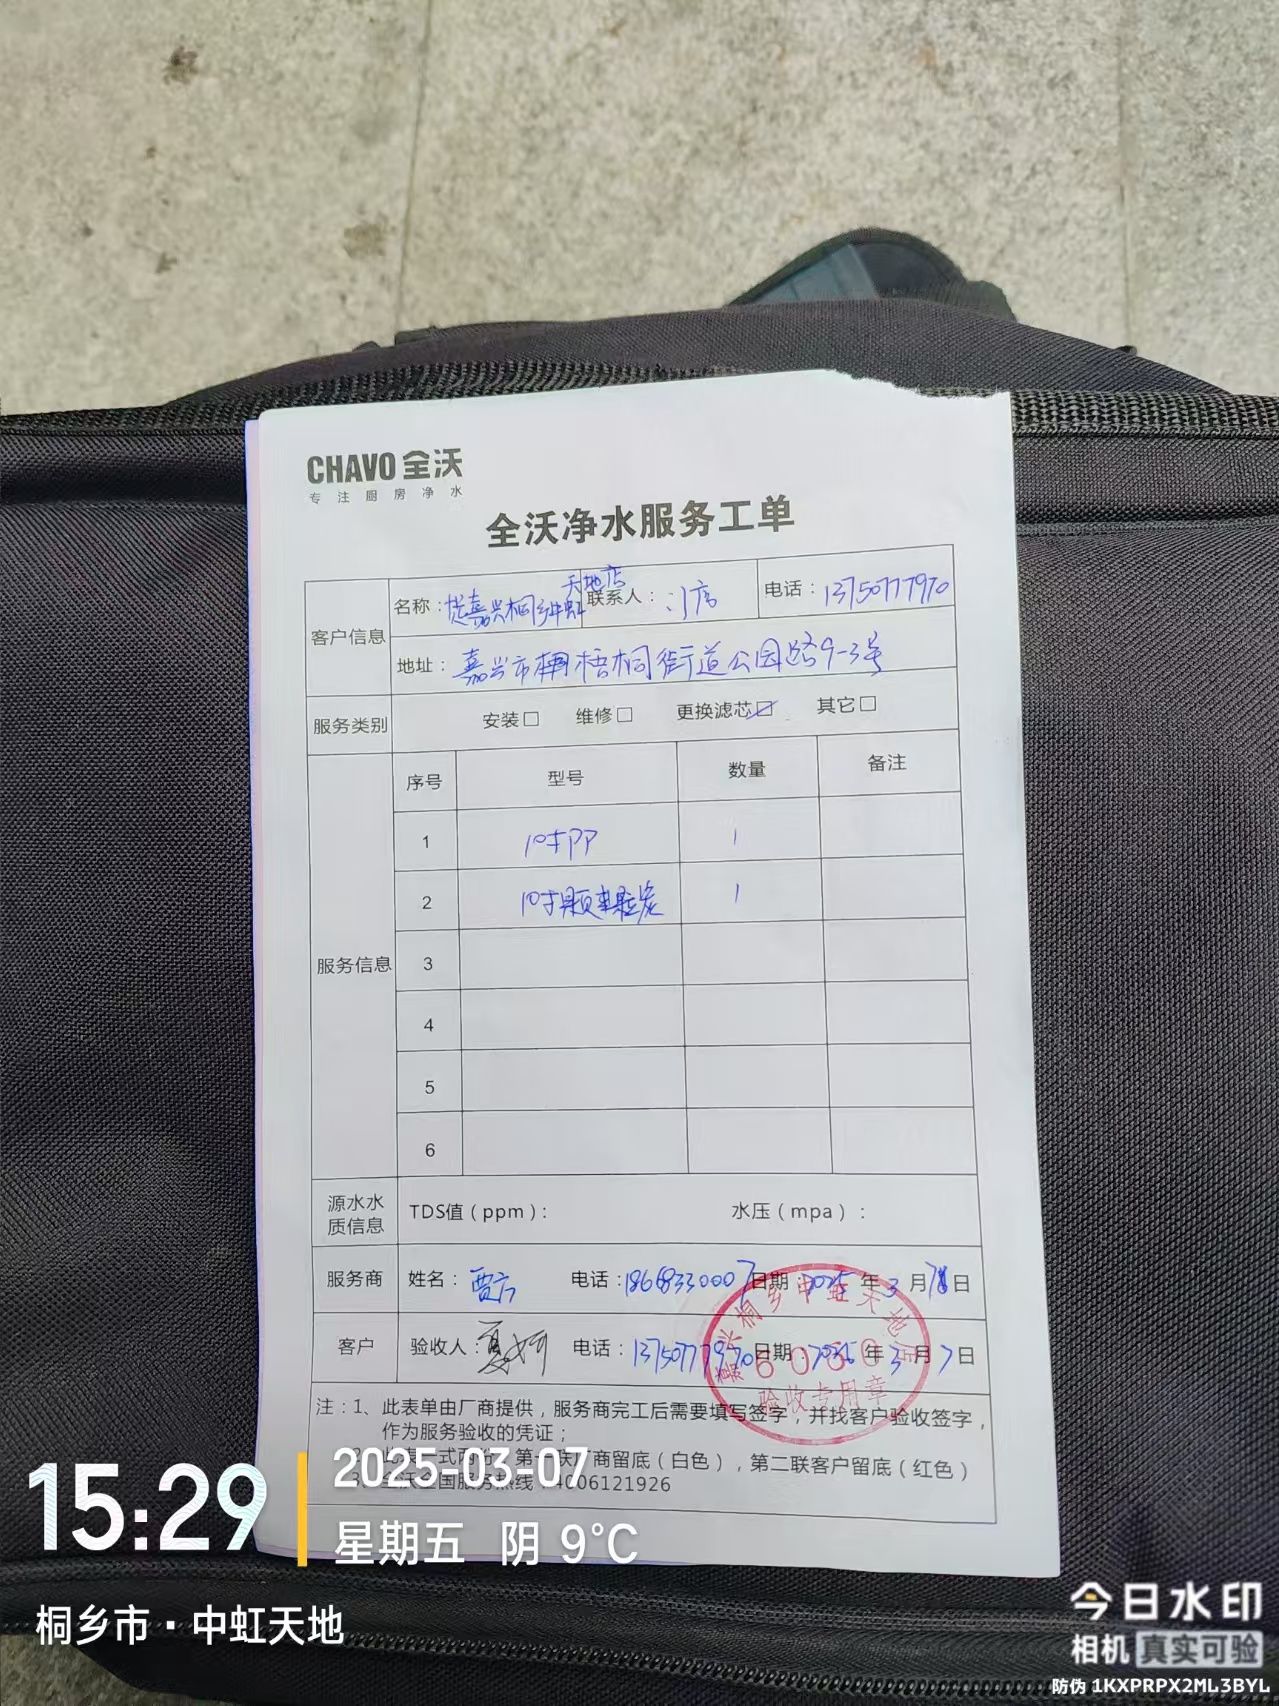 CHAVO 全沃
专注厨房净水
全沃净水服务工单
客户信息
名称：嘉兴桐乡中虹天地店
联系人：门店
电话：13750777970
地址：嘉兴市梧桐街道公园路9-3号
服务类别 安装□ 维修□ 更换滤芯☑ 其它□
服务信息
序号 型号 数量 备注
1 10寸PP 1
2 10寸颗粒炭 1
3
4
5
6
源水水质信息 TDS值（ppm）： 水压（mpa）：
服务商 姓名：贾广 电话：18668330007 日期：2025年3月7日
客户 验收人： 电话：13750777970 日期：2025年3月7日
嘉兴桐乡中虹天地店
6030
验收专用章
注：1、此表单由厂商提供，服务商完工后需要填写签字，并找客户验收签字，
作为服务验收的凭证；
2、此表一式两份，第一联厂商留底（白色），第二联客户留底（红色）
3、全沃全国服务热线：4006121926
15:29
2025-03-07
星期五 阴 9°C
桐乡市·中虹天地
今日水印
相机 真实可验
防伪 1KXPRPX2ML3BYL